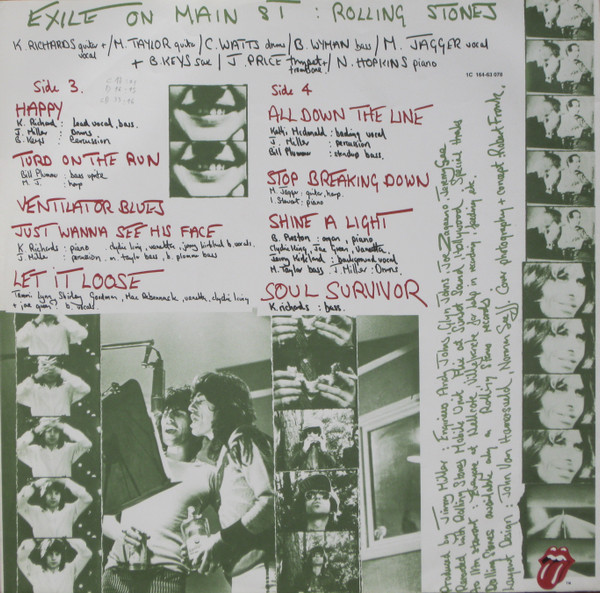 EXILE ON MAIN ST : ROLLING STONES
K. RICHARDS guitar + vocal / M. TAYLOR guita / C. WATTS drums / B. WYMAN bass / M. JAGGER vocal
+ B. KEYS sax / J. PRICE trumpet + trombone / N. HOPKINS piano
1C 164-63 070
Side 3.
HAPPY
K. Richard : lead vocal, bass.
J. Miller : Drums.
B. Keys : Percussion
TURD ON THE RUN
Bill Plummer : bass uprite
M. J. : harp
VENTILATOR BLUES
JUST WANNA SEE HIS FACE
K. Richards : piano clydie king, vanetta, jerry kirkland b. vocals.
J. Miller : percussion, m. taylor bass, b. plummer bass
LET IT LOOSE
Tammi Lynn, Shirley Goodman, Mac Rebennack, vanetta, clydie king
+ joe green b. vocals
Side 4
ALL DOWN THE LINE
Kathi Mcdonald : backing vocal
J. Miller : percussion
Bill Plummer : standup bass.
STOP BREAKING DOWN
M. Jagger : guitar, harp.
I. Stewart : piano
SHINE A LIGHT
B. Preston : organ, piano
Clydie King, Joe Green, Vanetta,
Jerry Kirkland : background vocal
M. Taylor bass J. Miller : Drums.
SOUL SURVIVOR
K. richards : bass.
Produced by Jimmy Miller : Engineers Andy Johns, Glyn Johns, Joe Zagarino, Jeremy Gee
Recorded with Rolling Stones Mobile Unit. Also at Sunset Sound, Hollywood. Special thanks
to Ian stewart : everyone at Nellcote, Villefranche for help in recording, feeding etc.
Rolling Stones available only on Rolling Stone records
Layout Design : John Van Hamersveld Norman Seeff. Cover photography + concept Robert Frank.